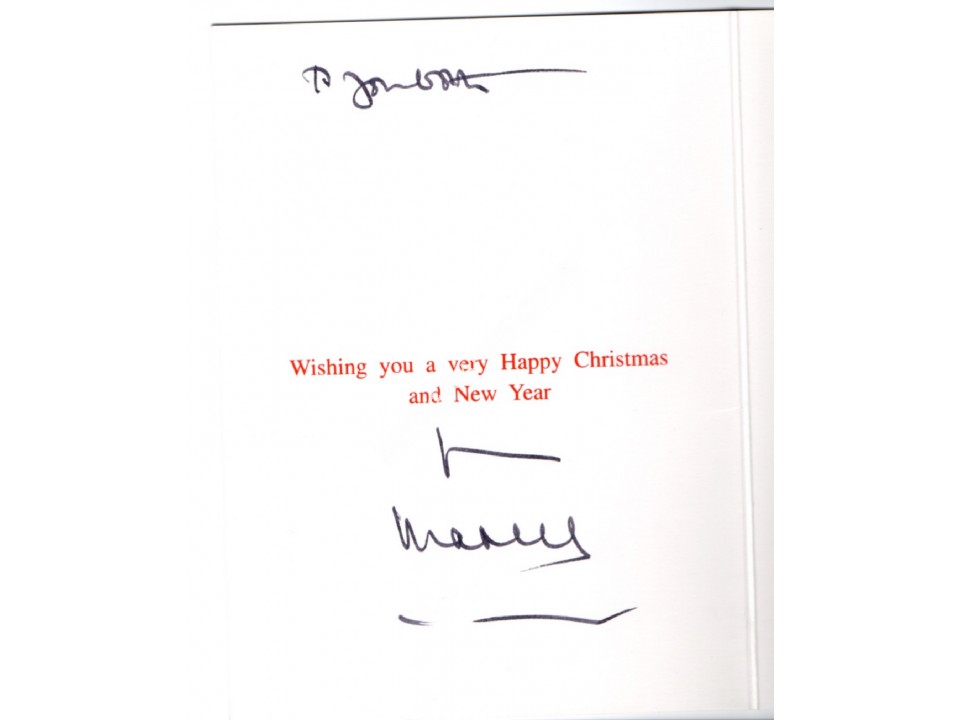 To Jonathan
Wishing you a very Happy Christmas
and New Year
Marcus